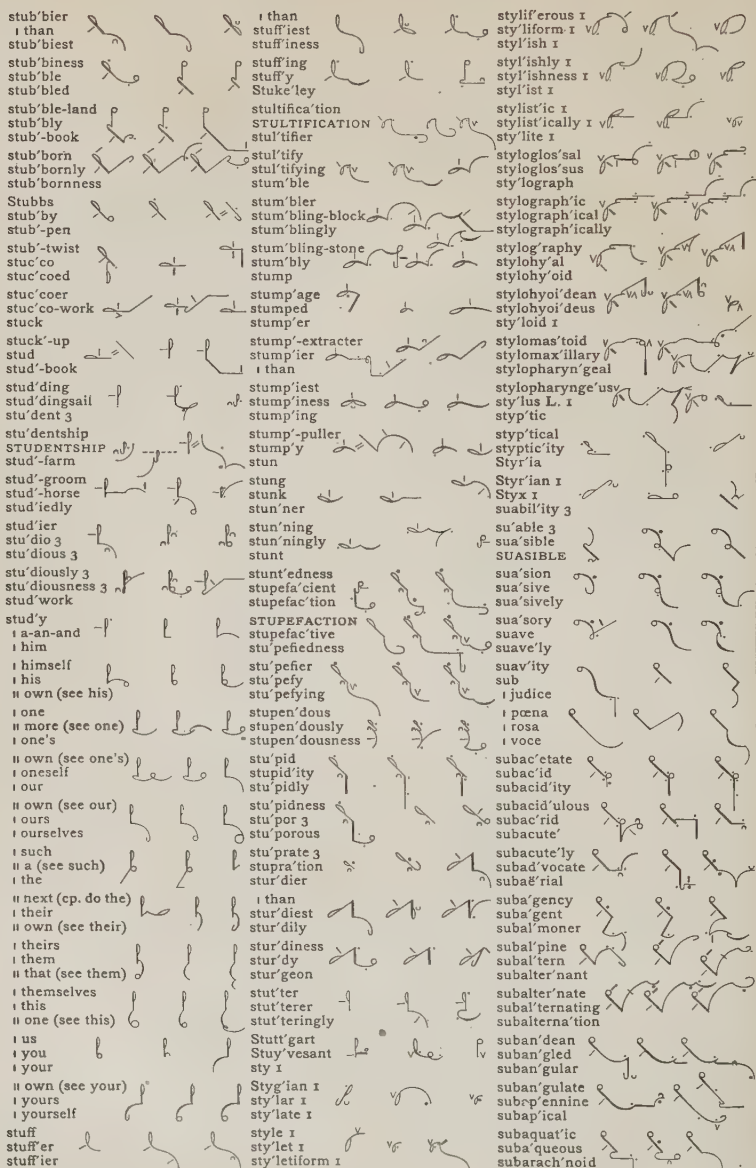 stub'bier
ı than
stub'biest
stub'biness
stub'ble
stub'bled
stub'ble-land
stub'bly
stub'-book
stub'born
stub'bornly
stub'bornness
Stubbs
stub'by
stub'-pen
stub'-twist
stuc'co
stuc'coed
stuc'coer
stuc'co-work
stuck
stuck'-up
stud
stud'-book
stud'ding
stud'dingsail
stu'dent 3
stu'dentship
STUDENTSHIP
stud'-farm
stud'-groom
stud'-horse
stud'iedly
stud'ier
stu'dio 3
stu'dious 3
stu'diously 3
stu'diousness 3
stud'work
stud'y
ı a-an-and
ı him
ı himself
ı his
ıı own (see his)
ı one
ıı more (see one)
ı one's
ıı own (see one's)
ı oneself
ı our
ıı own (see our)
ı ours
ı ourselves
ı such
ıı a (see such)
ı the
ıı next (cp. do the)
ı their
ıı own (see their)
ı theirs
ı them
ıı that (see them)
ı themselves
ı this
ıı one (see this)
ı us
ı you
ı your
ıı own (see your)
ı yours
ı yourself
stuff
stuff'er
stuff'ier
ı than
stuff'iest
stuff'iness
stuff'ing
stuff'y
Stuke'ley
stultifica'tion
STULTIFICATION
stul'tifier
stul'tify
stul'tifying
stum'ble
stum'bler
stum'bling-block
stum'blingly
stum'bling-stone
stum'bly
stump
stump'age
stumped
stump'er
stump'-extracter
stump'ier
ı than
stump'iest
stump'iness
stump'ing
stump'-puller
stump'y
stun
stung
stunk
stun'ner
stun'ning
stun'ningly
stunt
stunt'edness
stupefa'cient
stupefac'tion
STUPEFACTION
stupefac'tive
stu'pefiedness
stu'pefier
stu'pefy
stu'pefying
stupen'dous
stupen'dously
stupen'dousness
stu'pid
stupid'ity
stu'pidly
stu'pidness
stu'por 3
stu'porous
stu'prate 3
stupra'tion
stur'dier
ı than
stur'diest
stur'dily
stur'diness
stur'dy
stur'geon
stut'ter
stut'terer
stut'teringly
Stutt'gart
Stuy'vesant
sty ı
Styg'ian ı
sty'lar ı
sty'late ı
style ı
sty'let ı
sty'letiform ı
stylif'erous ı
sty'liform ı
styl'ish ı
styl'ishly ı
styl'ishness ı
styl'ist ı
stylist'ic ı
stylist'ically ı
sty'lite ı
styloglos'sal
styloglos'sus
sty'lograph
stylograph'ic
stylograph'ical
stylograph'ically
stylog'raphy
stylohy'al
stylohy'oid
stylohyoi'dean
stylohyoi'deus
sty'loid ı
stylomas'toid
stylomax'illary
stylopharyn'geal
stylopharynge'us
sty'lus L. ı
styp'tic
styp'tical
styptic'ity
Styr'ia
Styr'ian ı
Styx ı
suabil'ity 3
su'able 3
sua'sible
SUASIBLE
sua'sion
sua'sive
sua'sively
sua'sory
suave
suave'ly
suav'ity
sub
ı judice
ı pœna
ı rosa
ı voce
subac'etate
subac'id
subacid'ity
subacid'ulous
subac'rid
subacute'
subacute'ly
subad'vocate
subaë'rial
suba'gency
suba'gent
subal'moner
subal'pine
subal'tern
subalter'nant
subalter'nate
subalter'nating
subalterna'tion
suban'dean
suban'gled
suban'gular
suban'gulate
subap'ennine
subap'ical
subaquat'ic
suba'queous
subarach'noid